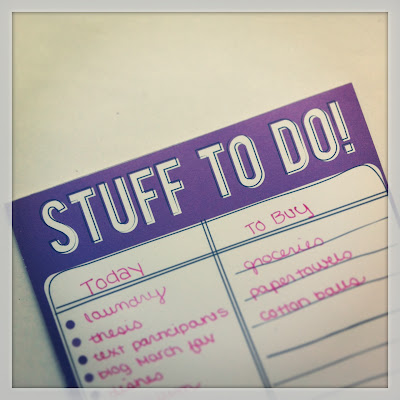 STUFF TO DO!
Today
laundry
thesis
text participants
blog March fav
dishes
TO BUY
groceries
paper towels
cotton balls